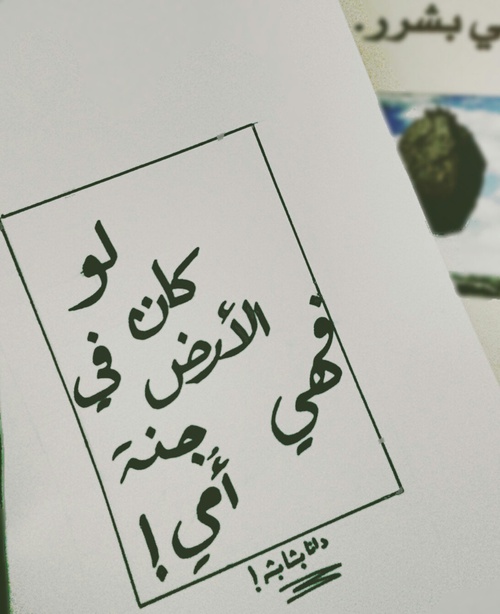 ي بشرر.
لو
كان في
الأرض
جنة فهي
أمي!